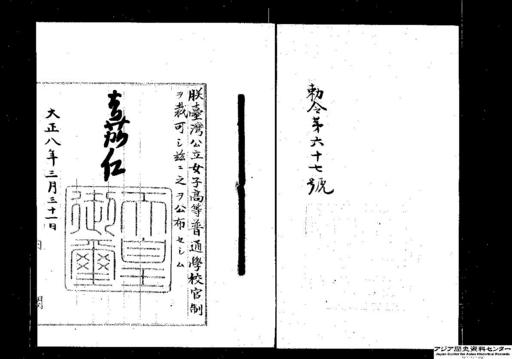 勅令第六十七號
朕臺灣公立女子高等普通學校官制
ヲ裁可シ玆ニ之ヲ公布セシム
嘉仁
天皇
御璽
大正八年三月三十一日
アジア歴史資料センター
Japan Center for Asian Historical Records